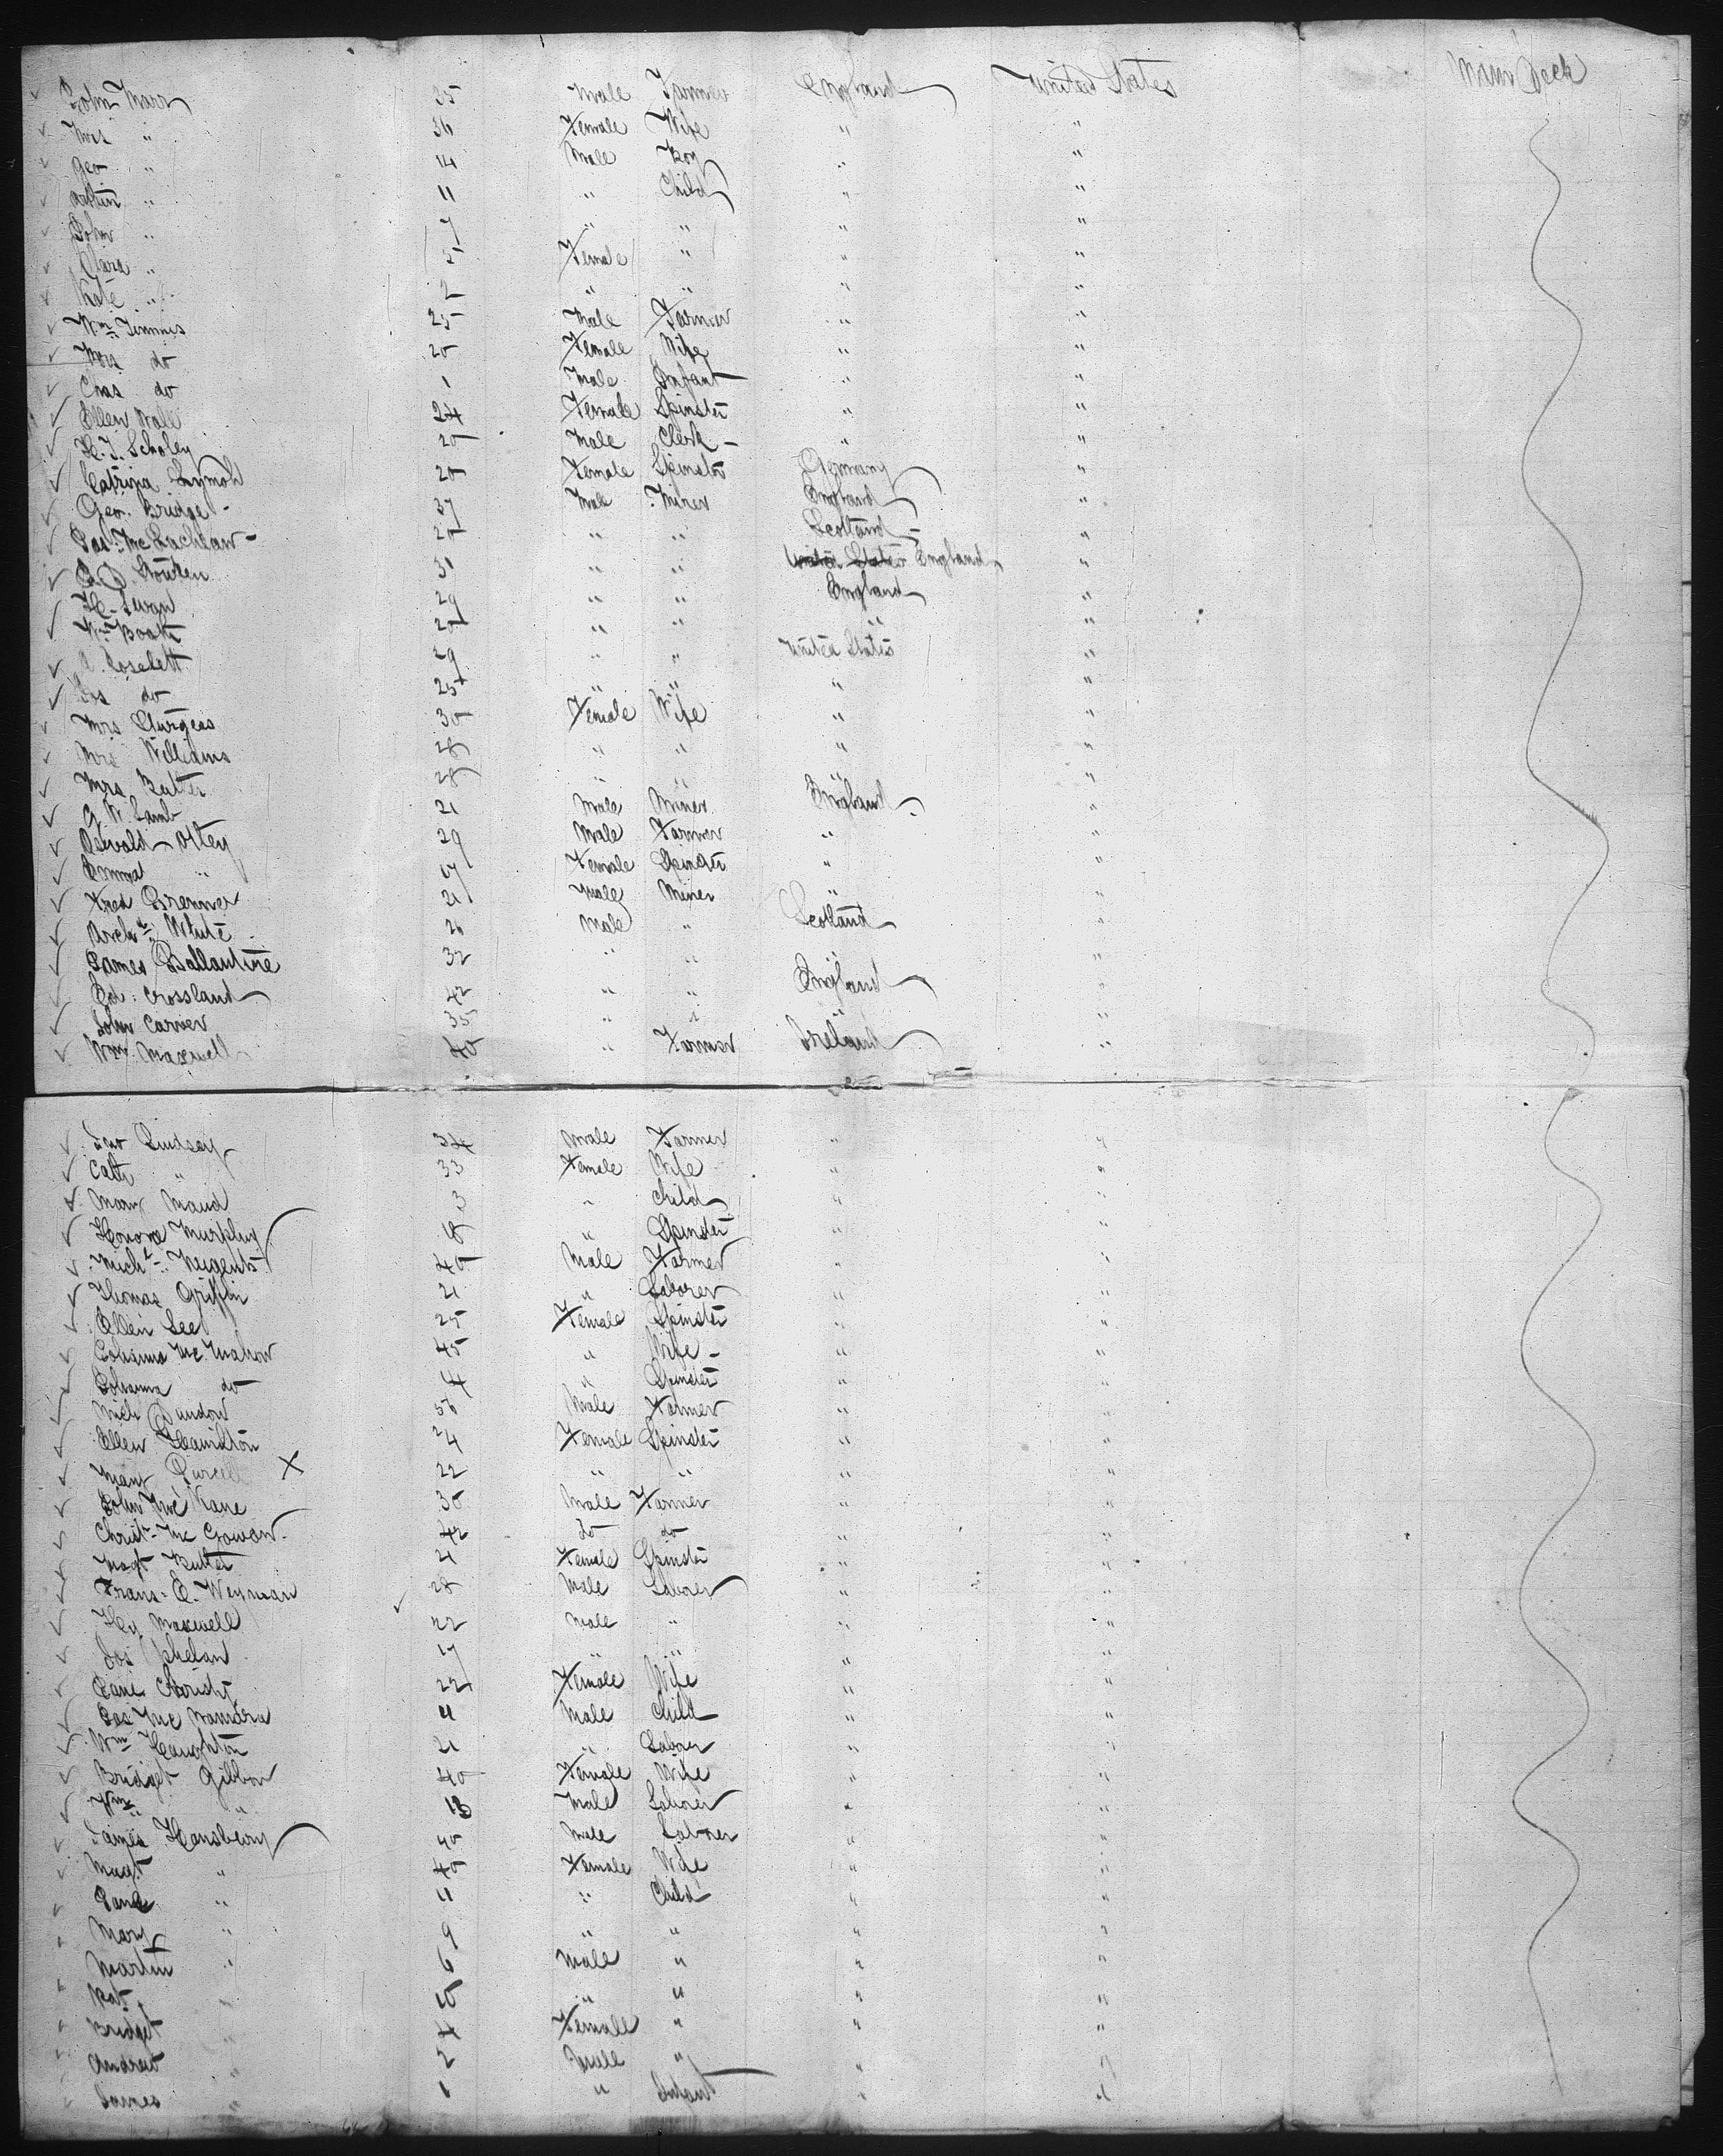 John Marr 35 Male Farmer England United States Main Deck
Mrs " 36 Female Wife " "
Geo " 14 Male Boy " "
" 11 " Child " "
John " 7 " " " "
Clara " 5 Female " " "
Kate " " " " "
Wm Timmis 25 Male Farmer " "
Mrs do 20 Female Wife " "
Chas do 1 Male Infant " "
Ellen Wall 24 Female Spinster " "
H. J. Scholey 20 Male Clerk " "
Catrina 20 Female Spinster Germany "
Geo. Bridge 37 Male Miner England "
Jas. McLachlan 20 " " Scotland "
31 " " United States England "
H. Swan 29 " " England "
Wm Booth " " " "
Coselett 29 " " United States "
do 25 " " " "
Mrs Sturgeas 30 Female Wife " "
Mrs Williams 28 " " " "
Mrs 28 " " " "
G. W. Lamb 21 Male Miner England "
Oswald Otley 29 Male Farmer " "
Emma " 17 Female Spinster " "
Fred Bremner 21 Male Miner " "
Archd White Male " Scotland "
James Ballantine 32 " " " "
Ed: Crossland 42 " " England "
John Carrier 35 " " " "
Wm Maxwell 40 " Farmer Ireland "
Jno Lindsay 34 Male Farmer " "
Cath " 33 Female Wife " "
Mary Maud 3 " Child " "
Honora Murphy 18 " Spinster " "
Michl Nugent 40 Male Farmer " "
Thomas Griffin 21 " Laborer " "
Ellen Lee 25 Female Spinster " "
Johanna McMahon 45 " Wife " "
Johanna do 4 " Spinster " "
Mich 56 Male Farmer " "
Ellen Hamilton 24 Female Spinster " "
Mary Purcell X 22 " " " "
John McKane 30 Male Farmer " "
Christr McGowan 42 do do " "
Magt Butler 21 Female Spinster " "
Frans. E. Weyman 28 Male Laborer " "
Hy Maxwell 22 Male " " "
Jos Phelan " " " "
Jane 22 Female Wife " "
Jas McNamara 11 Male Child " "
Wm Haughton 21 " Laborer " "
Bridget Gibbon 40 Female Wife " "
Wm " 18 Male Laborer " "
James Hansberry 40 Male Laborer " "
Magt " 40 Female Wife " "
Jane " 11 " Child " "
Mary " 9 " " " "
Martin " 6 Male " " "
Pat " 5 " " " "
Bridget " 4 Female " " "
Andrew " 2 Male " " "
James " 1 " Infant " "